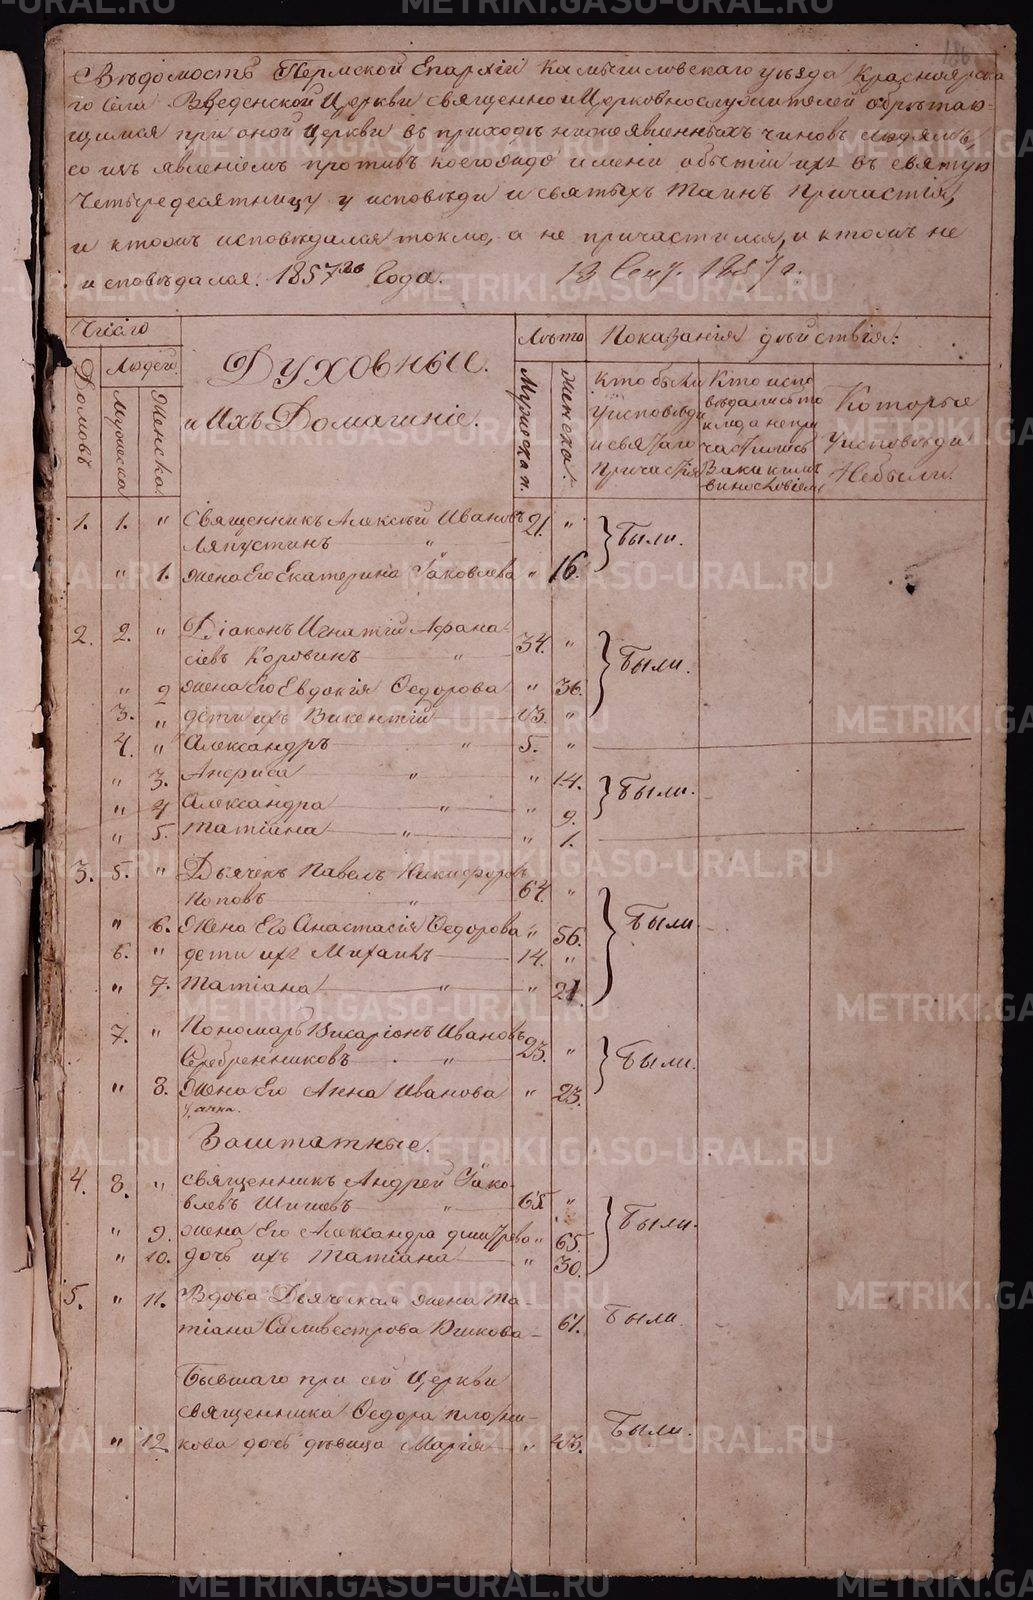 186
Вѣдомость Пермской Епархіи Камышловскаго уѣзда Красноярска
го Села Введенской Церкви священно и Церковнослужителей обрѣтаю=
щимся при оной Церкви въ приходѣ нижеявленныхъ чиновъ людямъ,
со изъявленіемъ противъ коегождо имени о бытіи ихъ въ святую
Четыредесятницу у исповѣди и святыхъ Таинъ Причастія,
и ктожъ исповѣдался токмо, а не причастился, и ктожъ не
исповѣдался. 1857го Года. 1857 г.
Число
Домовъ
Людей
Мужеска
Женска.
Духовные.
и Ихъ Домашніе.
Лѣта
Мужеска п.
Женска.
Показанія дѣйствія:
Кто были
у исповѣди
и святаго
причастія
Кто испо
вѣдались то
кмо а не при
частились
за какимъ
винословіемъ
Которые
у исповѣди
Небыли.
1. 1. " Священникъ Алексѣй Ивановъ 21. "
Ляпустинъ " Были.
" 1. жена Его Екатерина Іаковлева " 16.
2. 2. " Діаконъ Игнатій Афана-
сіевъ Коровинъ " 34. " Были.
" 2 жена Его Евдокія Ѳедорова " 36.
3. " дети ихъ Викентій 13. "
4. " Александръ " 5. "
" 3. Анфиса " " 14. Были.
" 4 Александра " " 9.
" 5. Татіана " " 1.
3. 5. " Дьячекъ Павелъ Никифоровъ
Поповъ " 64. " Были
" 6. Жена Его Анастасія Ѳедорова " 56.
6. " дети ихъ Михаилъ 14. "
" 7. Татіана " " 21.
7. " Пономарь Иларіонъ Ивановъ
Серебренниковъ " 23. " Были.
" 8. Жена Его Анна Иванова " 23.
Заштатные.
4. 8. " священникъ Андрей Іако-
влевъ Шишевъ " 65 " Были.
" 9. жена Его Александра дмитрева " 65.
" 10. дочь ихъ Татіана " 30.
5. " 11. Вдова Дьяческая жена Та-
тіана Силивестрова 61. Были.
Бывшаго при сей Церкви
священника Ѳедора Плотни-
" 12 кова дочь дѣвица Марія " 43. Были.
METRIKI.GASO-URAL.RU